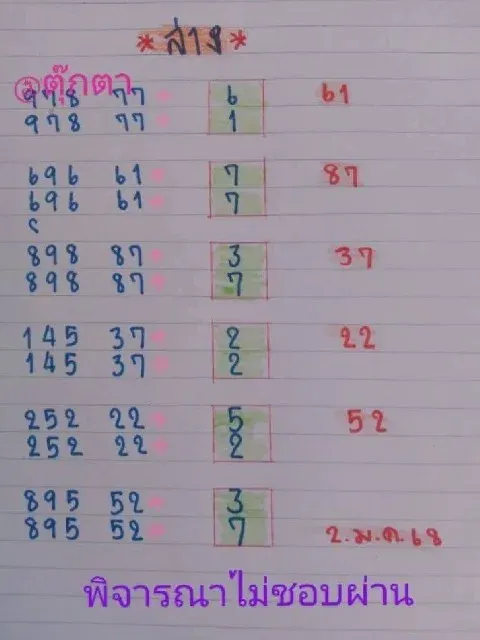 *ล่าง*
@ตุ๊กตา
978 77 6 61
978 77 1
696 61 7 87
696 61 7
898 87 3 37
898 87 7
145 37 2 22
145 37 2
252 22 5 52
252 22 2
895 52 3
895 52 7 2.ม.ค.68
พิจารณาไม่ชอบผ่าน